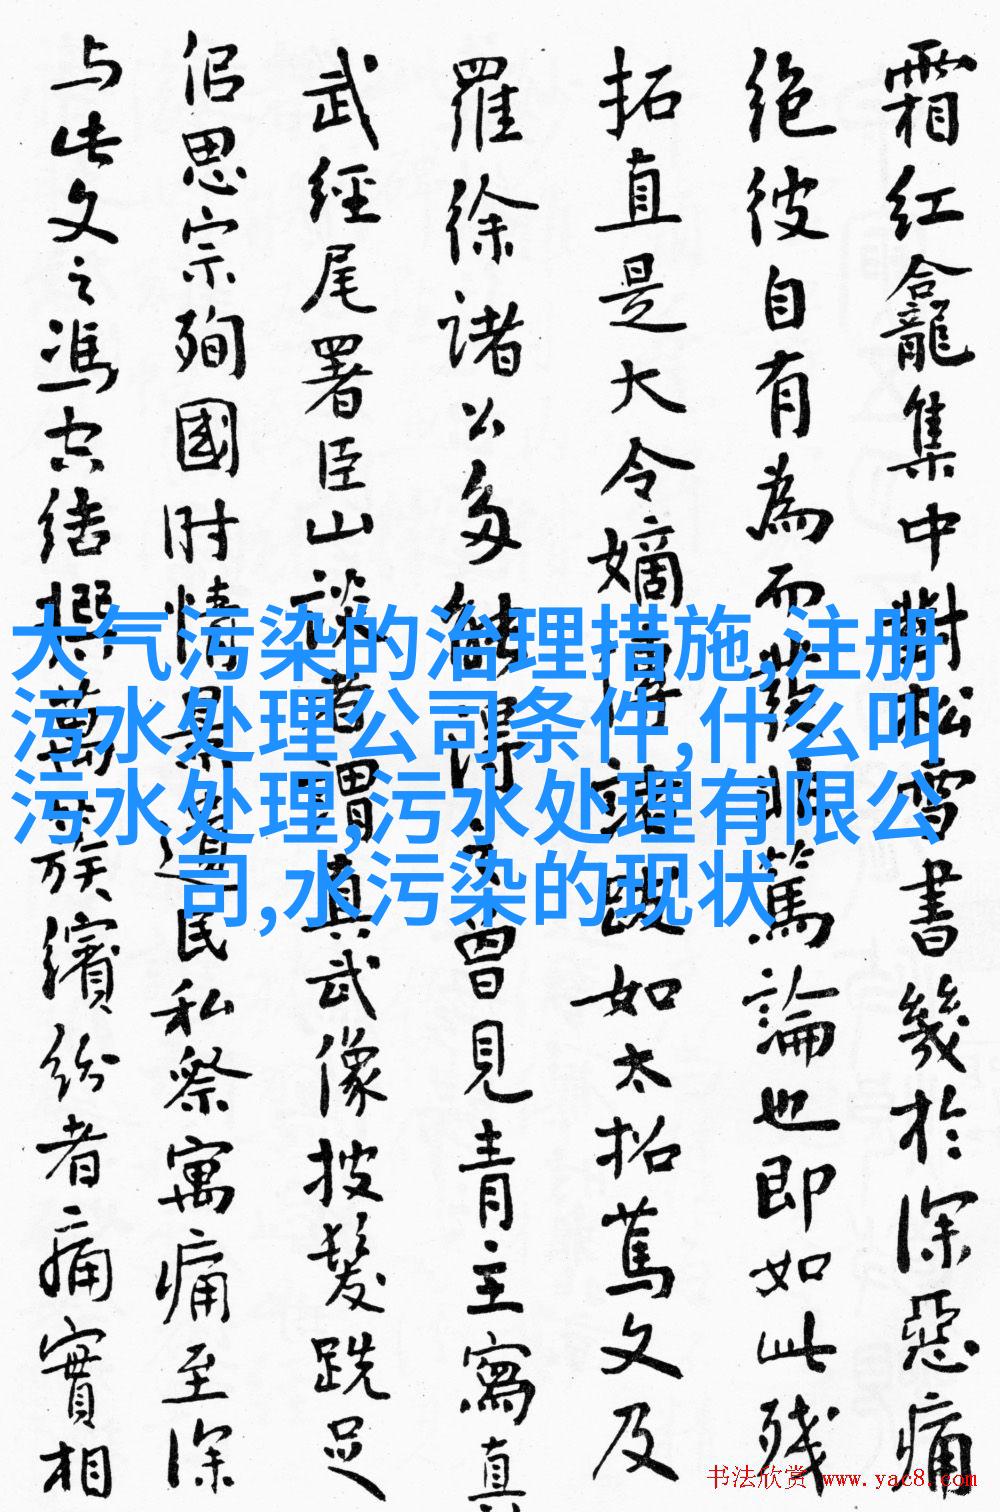 霜紅龕集中對松雪書幾於深惡痛
絶彼自有為而發非篤論也即如此殘
拓直是大令嫡傳諸跋如太拓 文及
羅徐諸公多能得之曾見青主寫真
武經尾署臣山謹 謂真武像披髮跣足
侣思宗殉國时情景遺民私祭寓痛至深
与此文之馮空結撰萬族繽紛者痛實相
大气污染的治理措施,注册
污水处理公司条件,什么叫
污水处理,污水处理有限公
司,水污染的现状
书法欣赏 www.yac8.com